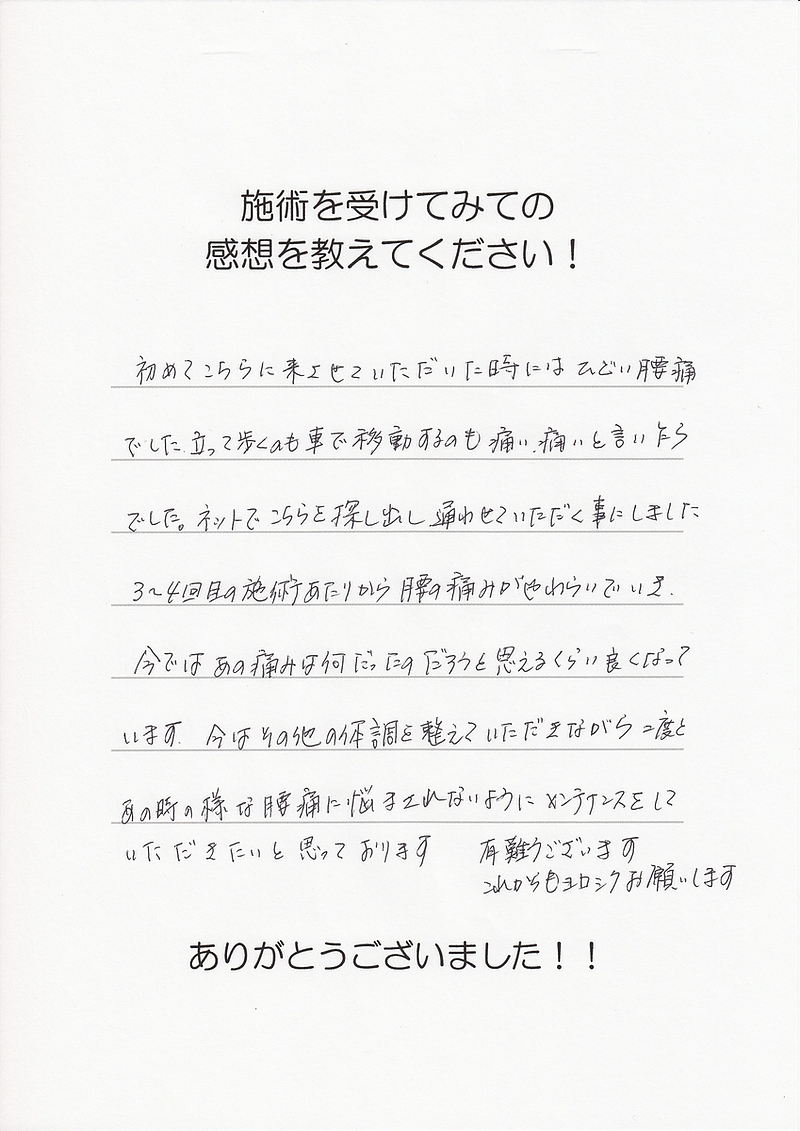 施術を受けてみての
感想を教えてください！
初めてこちらに来させていただいた時にはひどい腰痛
でした.立って歩くのも車で移動するのも痛い、痛いと言いたら
でした。ネットでこちらを探し出し通わせていただく事にしました
3〜4回目の施術あたりから腰の痛みがやわらいでいき.
今ではあの痛みは何だったのだろうと思えるくらい良くなって
います. 今はその他の体調を整えていただきながら二度と
あの時の様な腰痛に悩まされないようにメンテナンスをして
いただきたいと思っております　有難うございます
これからもヨロシクお願いします
ありがとうございました！！